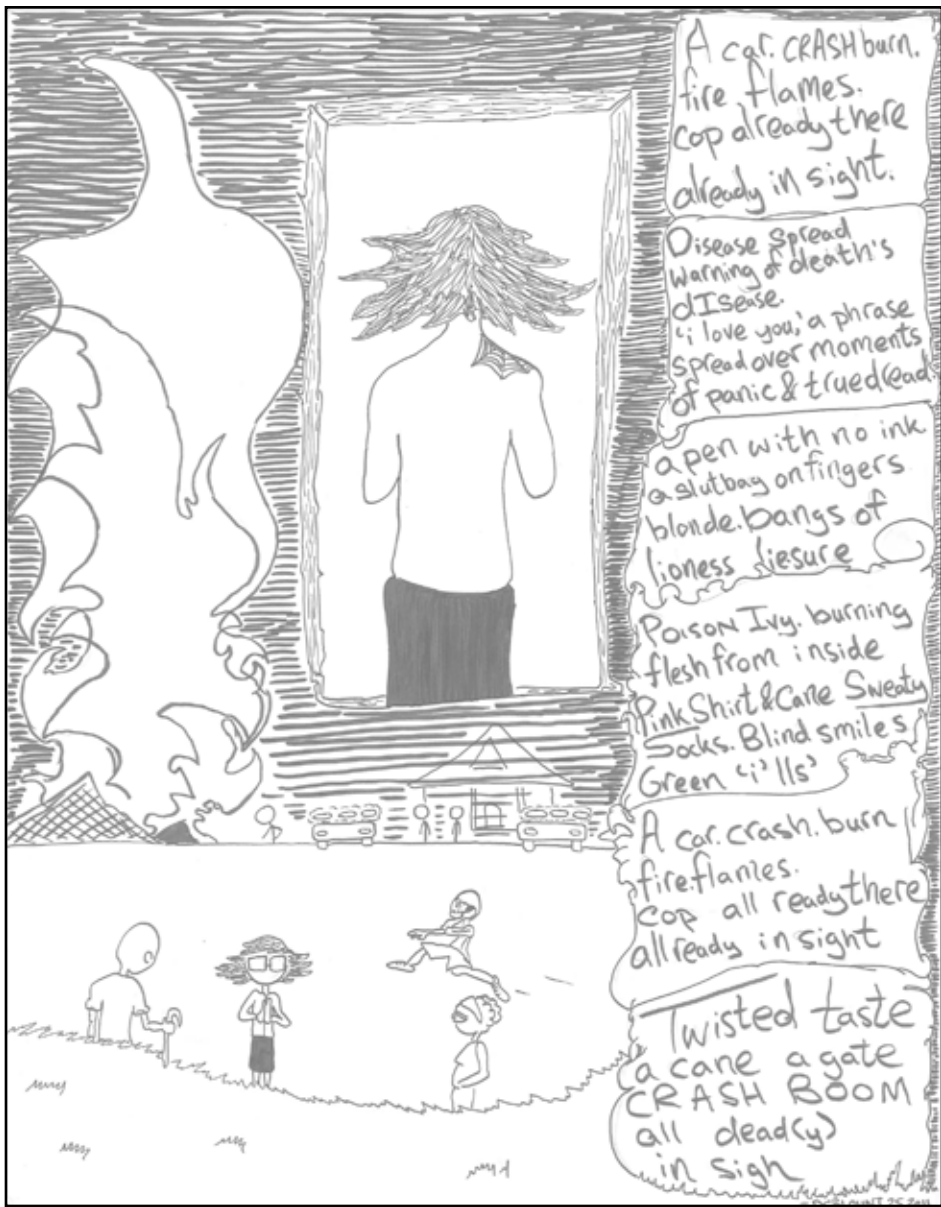 A car. CRASH burn.
fire flames.
cop already there
already in sight.
Disease spread
warning of death's
dISease.
'i love you,' a phrase
spread over moments
of panic & true dread.
a pen with no ink
a slutbag on fingers
blonde. bangs of
lioness liesure
Poison Ivy. burning
flesh from inside
Pink Shirt & Cane Sweaty
Socks. Blind smiles
Green 'i' lls'
A car. crash. burn
fire flames.
cop all ready there
all ready in sight
Twisted taste
a cane a gate
CRASH BOOM
all dead(y)
in sigh